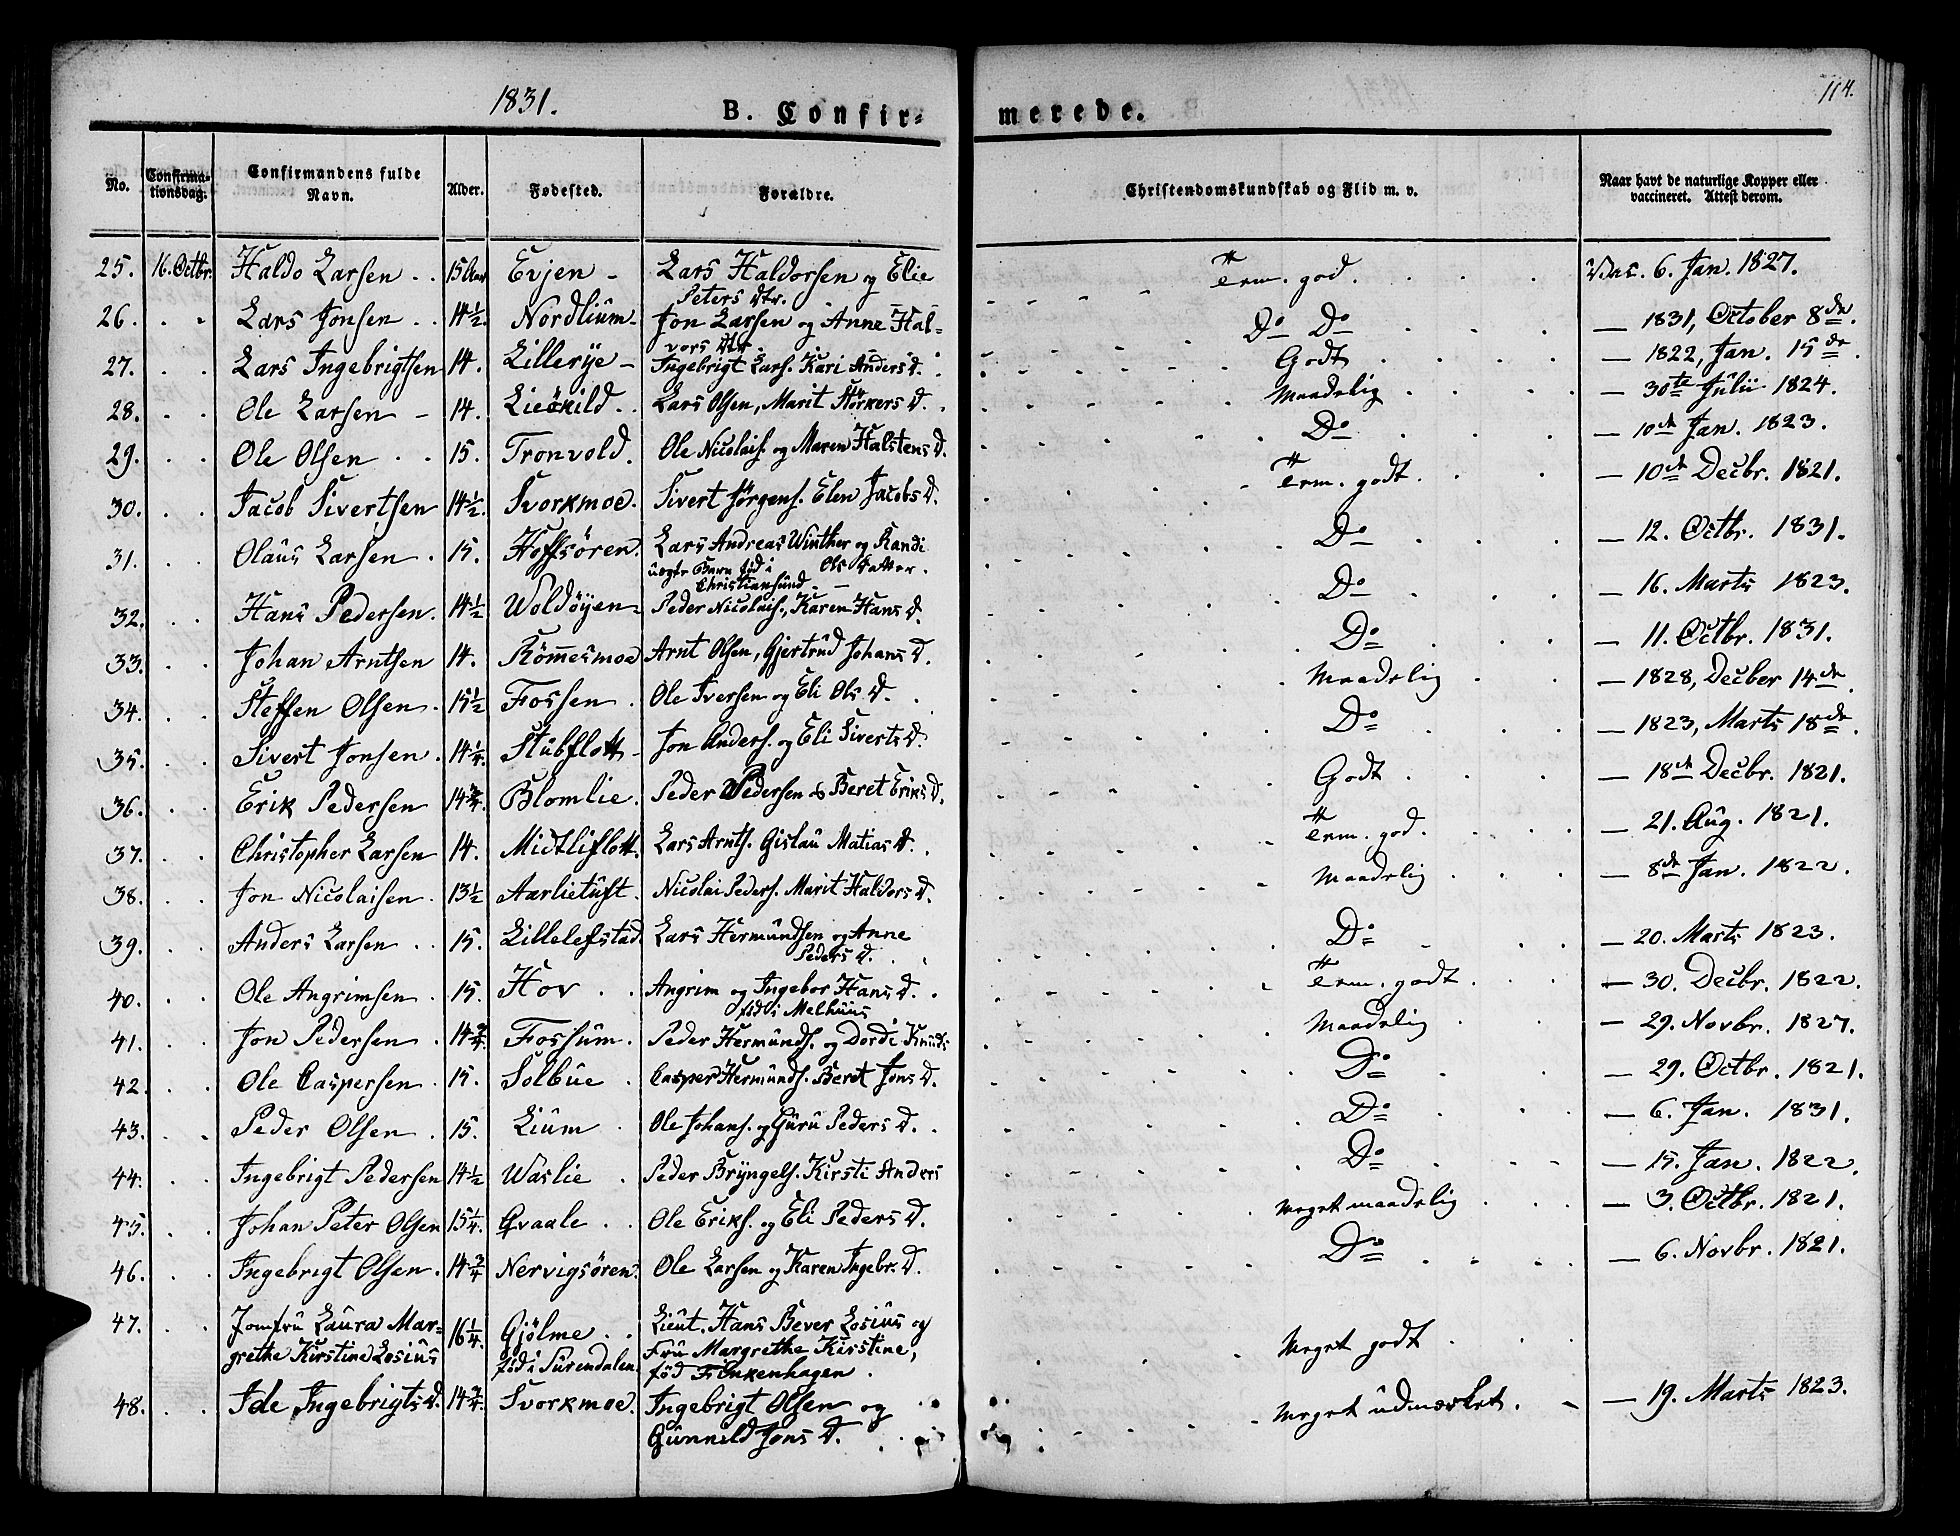 1831.
B. Confir=
merede.
114.
No.
Confirma-
tionsdag.
Confirmandens fulde
Navn.
Alder.
Fødested.
Forældre.
Christendomskundskab og Flid m. v.
Naar havt de naturlige Kopper eller
vaccineret. Attest derom.
25. 16. Octbr. Haldo Larsen . . 15 Aar Evjen - Lars Haldorsen og Elie
Peters Dtr. Tem. god. Vac. 6. Jan. 1827.
26. . . Lars Jonsen . . 14½. Nordlium - Jon Larsen og Anne Hal=
vors Dtr. Do Do — 1831, October 8de.
27. . . Lars Ingebrigtsen 14. Lillerye - Ingebrigt Lars. Kari Anders D. Godt — 1822, Jan. 15de.
28. . . Ole Larsen - 14. Lieökild . . Lars Olsen, Marit Störkers D. Maadelig — 30te Julii 1824.
29. . . Ole Olsen . . 15. Tronvold. Ole Nicolais. og Maren Halstens D. Do — 10de Jan. 1823.
30. . . Jacob Sivertsen 14½. Svorkmoe. Sivert Jörgens. Elen Jacobs D. Tem. godt. — 10de Decbr. 1821.
31. . . Olaus Larsen . 15. Hoffsören. Lars Andreas Winther og Randi
uægte Barn fød i Ols Datter.
Christiansund - Do — 12. Octbr. 1831.
32. . . Hans Pedersen. 14½ Woldöyen - Peder Nicolais., Karen Hans D. Do — 16. Marts 1823.
33. . . Johan Arntsen 14. Römesmoe Arnt Olsen, Gjertrud Johans D. Do — 11. Octbr. 1831.
34. . . Steffen Olsen . 15½ Fossen . Ole Iversen og Eli Ols D. Maadelig — 1828, Decber 14de.
35. . . Sivert Jonsen . 14¼. Stubflott - Jon Anders. og Eli Siverts D. Do — 1823, Marts 18de.
36. . . Erik Pedersen 14¾. Blomlie. Peder Pedersen & Beret Eriks D. Godt — 18de Decbr. 1821.
37. . . Christopher Larsen 14. Midtliflott. Lars Arnts. Gislau Matias D. Tem. god. — 21. Aug. 1821.
38. . . Jon Nicolaisen . 13½ Aarlietuft. Nicolai Peders. Marit Haldors D. Maadelig — 8de Jan. 1822.
39. . . Anders Larsen . . 15. Lillelefstad. Lars Hermundsen og Anne
Peders D. Do — 20. Marts 1823.
40. . . Ole Angrimsen . 15. Hov . . Angrim og Ingebor Hans D.
fød i Melhuus Tem. godt. — 30. Decbr. 1822.
41. . . Jon Pedersen . 14¾. Fossum. Peder Hermunds. og Dordi Knuds Maadelig — 29. Novbr. 1827.
42. . . Ole Caspersen . 15. Solbue . Casper Hermunds. Beret Jons D. Do — 29. Octbr. 1821.
43. . . Peder Olsen . 15. Lium . Ole Johans. og Guru Peders D. Do — 6. Jan. 1831.
44. . . Ingebrigt Pedersen 14½ Waslie . Peder Bryngels. Kirsti Anders Do — 15. Jan. 1822.
45. . . Johan Peter Olsen 15¼. Qvaale . . Ole Eriks. og Eli Peders D. Meget maadelig — 3. Octbr. 1821.
46. . . Ingebrigt Olsen . 14¾ Nervigsören. Ole Larsen og Karen Ingebr. D. Do — 6. Novbr. 1821.
47. . . Jomfru Laura Mar=
grethe Kirstine Losius 16¼. Gjölme . .
fød i Surendalen Lieut. Hans Bever Losius og
Fru Margrethe Kirstine,
fød Finkenhagen . Meget godt
48. . . Ide Ingebrigts D. 14¾. Svorkmoe. Ingebrigt Olsen og
Gunneld Jons D. Meget udmærket. — 19. Marts 1823.